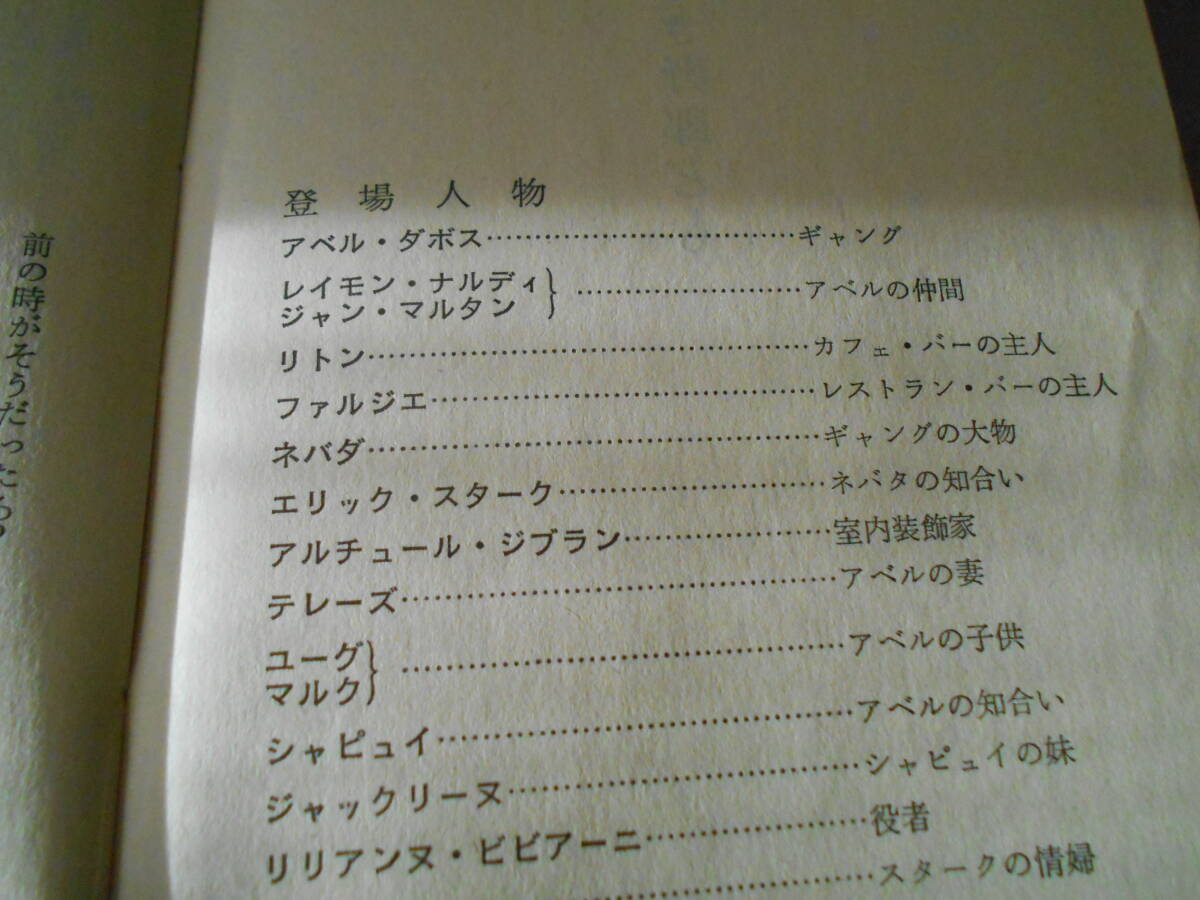 登場人物
アベル・ダボス……………………………ギャング
レイモン・ナルディ
ジャン・マルタン}……………………アベルの仲間
リトン………………………………………カフェ・バーの主人
ファルジエ…………………………………レストラン・バーの主人
ネバダ………………………………………ギャングの大物
エリック・スターク………………………ネバタの知合い
アルチュール・ジブラン…………………室内装飾家
テレーズ……………………………………アベルの妻
ユーグ
マルク}……………………………………アベルの子供
シャピュイ…………………………………アベルの知合い
ジャックリーヌ……………………………シャピュイの妹
リリアンヌ・ビビアーニ…………………役者
……………………スタークの情婦
前の時がそうだった